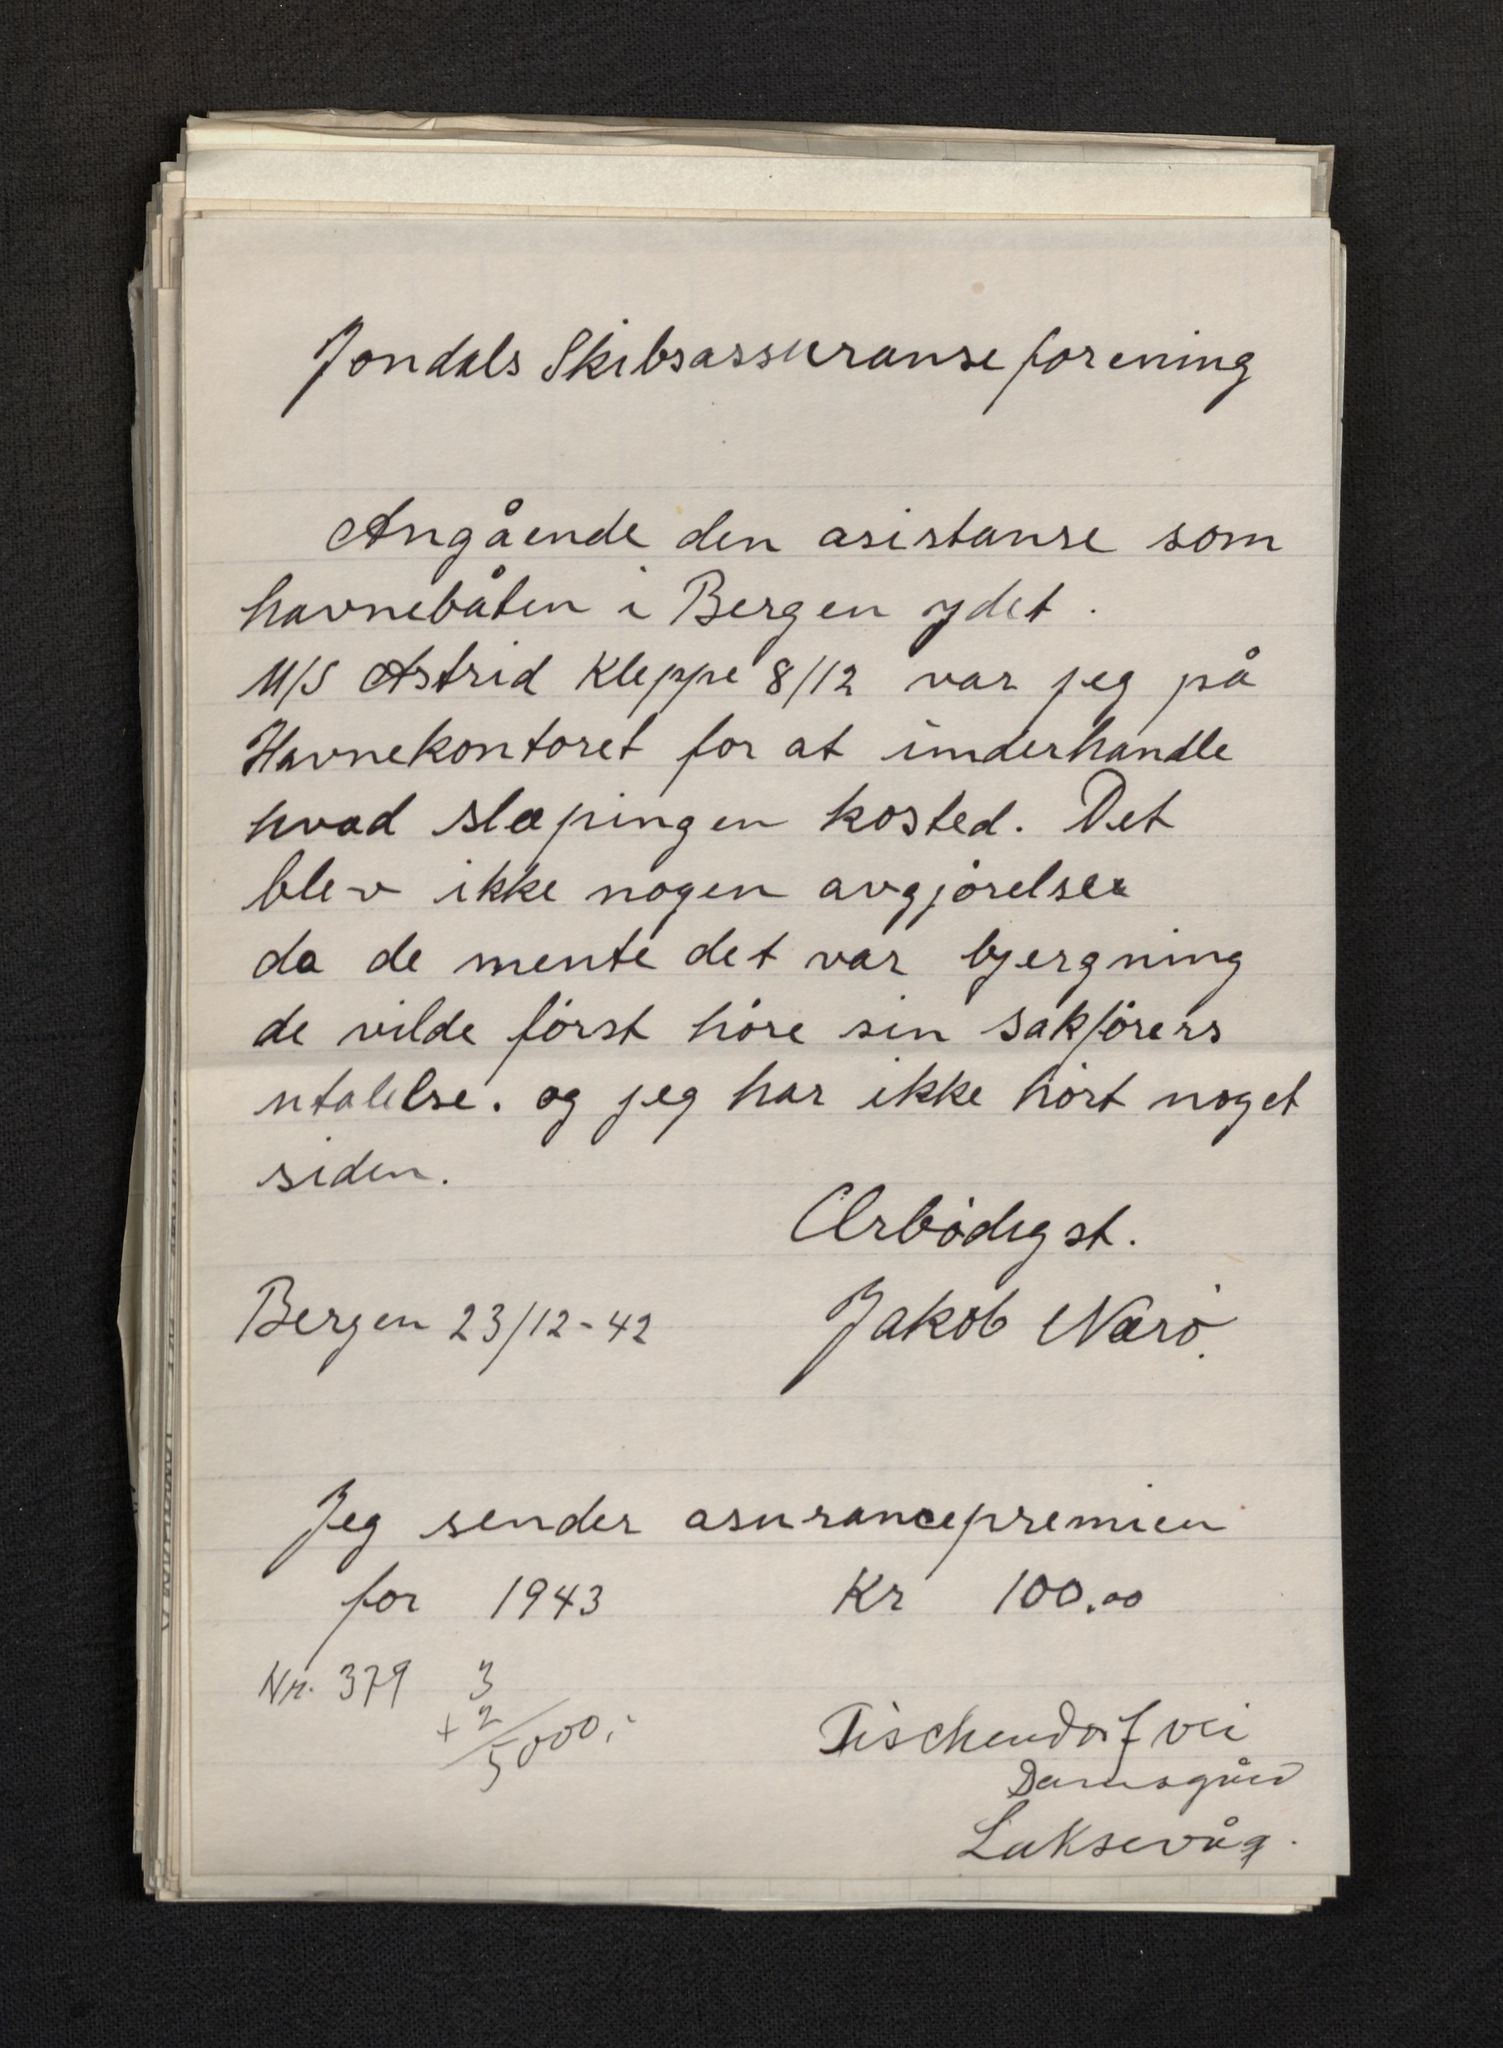 Jondals Skibsassuranseforening
Angående den asistanse som
havnebåten i Bergen ydet.
M/S Astrid Kleppe 8/12 var jeg på
Havnekontoret for at underhandle
hvad slæpingen kosted. Det
blev ikke nogen avgjørelse
da de mente det var bjergning
de vilde først høre sin sakførers
utalelse. og jeg har ikke hørt noget
siden.
Ærbødigst.
Bergen 23/12-42 Jakob Nærø.
Jeg sender asurancepremien
for 1943 Kr 100.00
Nr. 379 3
+ 2/5000.-
Tischendorf vei
Damsgård
Laksevåg.